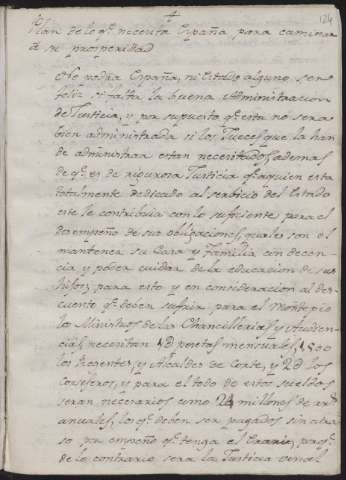 124
Plan de lo q.e necesita España para caminar
á su prosperidad
No podra España, ni Estado alguno ser
feliz si falta la buena Administracion
de Justicia, y por supuesto q.e esta no sera
bien administrada si los Jueces que la han
de administrar estan necesitados, ademas
de q.e es de rigurosa Justicia q.e a quien esta
totalmente dedicado al servicio del Estado
este le contribuia con lo suficiente para el
desempeño de sus obligaciones, quales son el
mantener su Casa y Familia con decen-
cia, y poder cuidar de la educacion de sus
hijos; para esto y en consideracion al des-
cuento q.e deben sufrir para el Montepio
los Ministros de las Chancillerias y Audien-
cias, necesitan pesetas mensuales, 1500
los Regentes, y Alcaldes de Corte, y 2D los
Consejeros, y para el todo de estos sueldos
seran necesarios como 24 millones de
anuales, lo q.e deben ser pagados sin atra-
so por empeño q.e tenga el Erario, pues
de lo contrario sera la Justicia venal